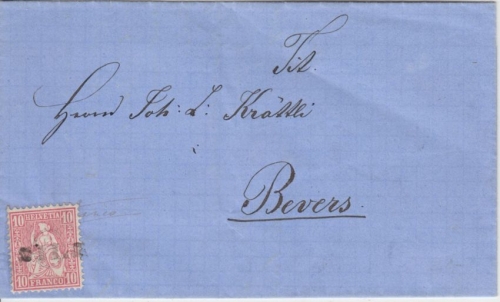 Tit.
Herrn Joh: L: Krättli
Bevers.
10 HELVETIA 10
10 FRANCO 10